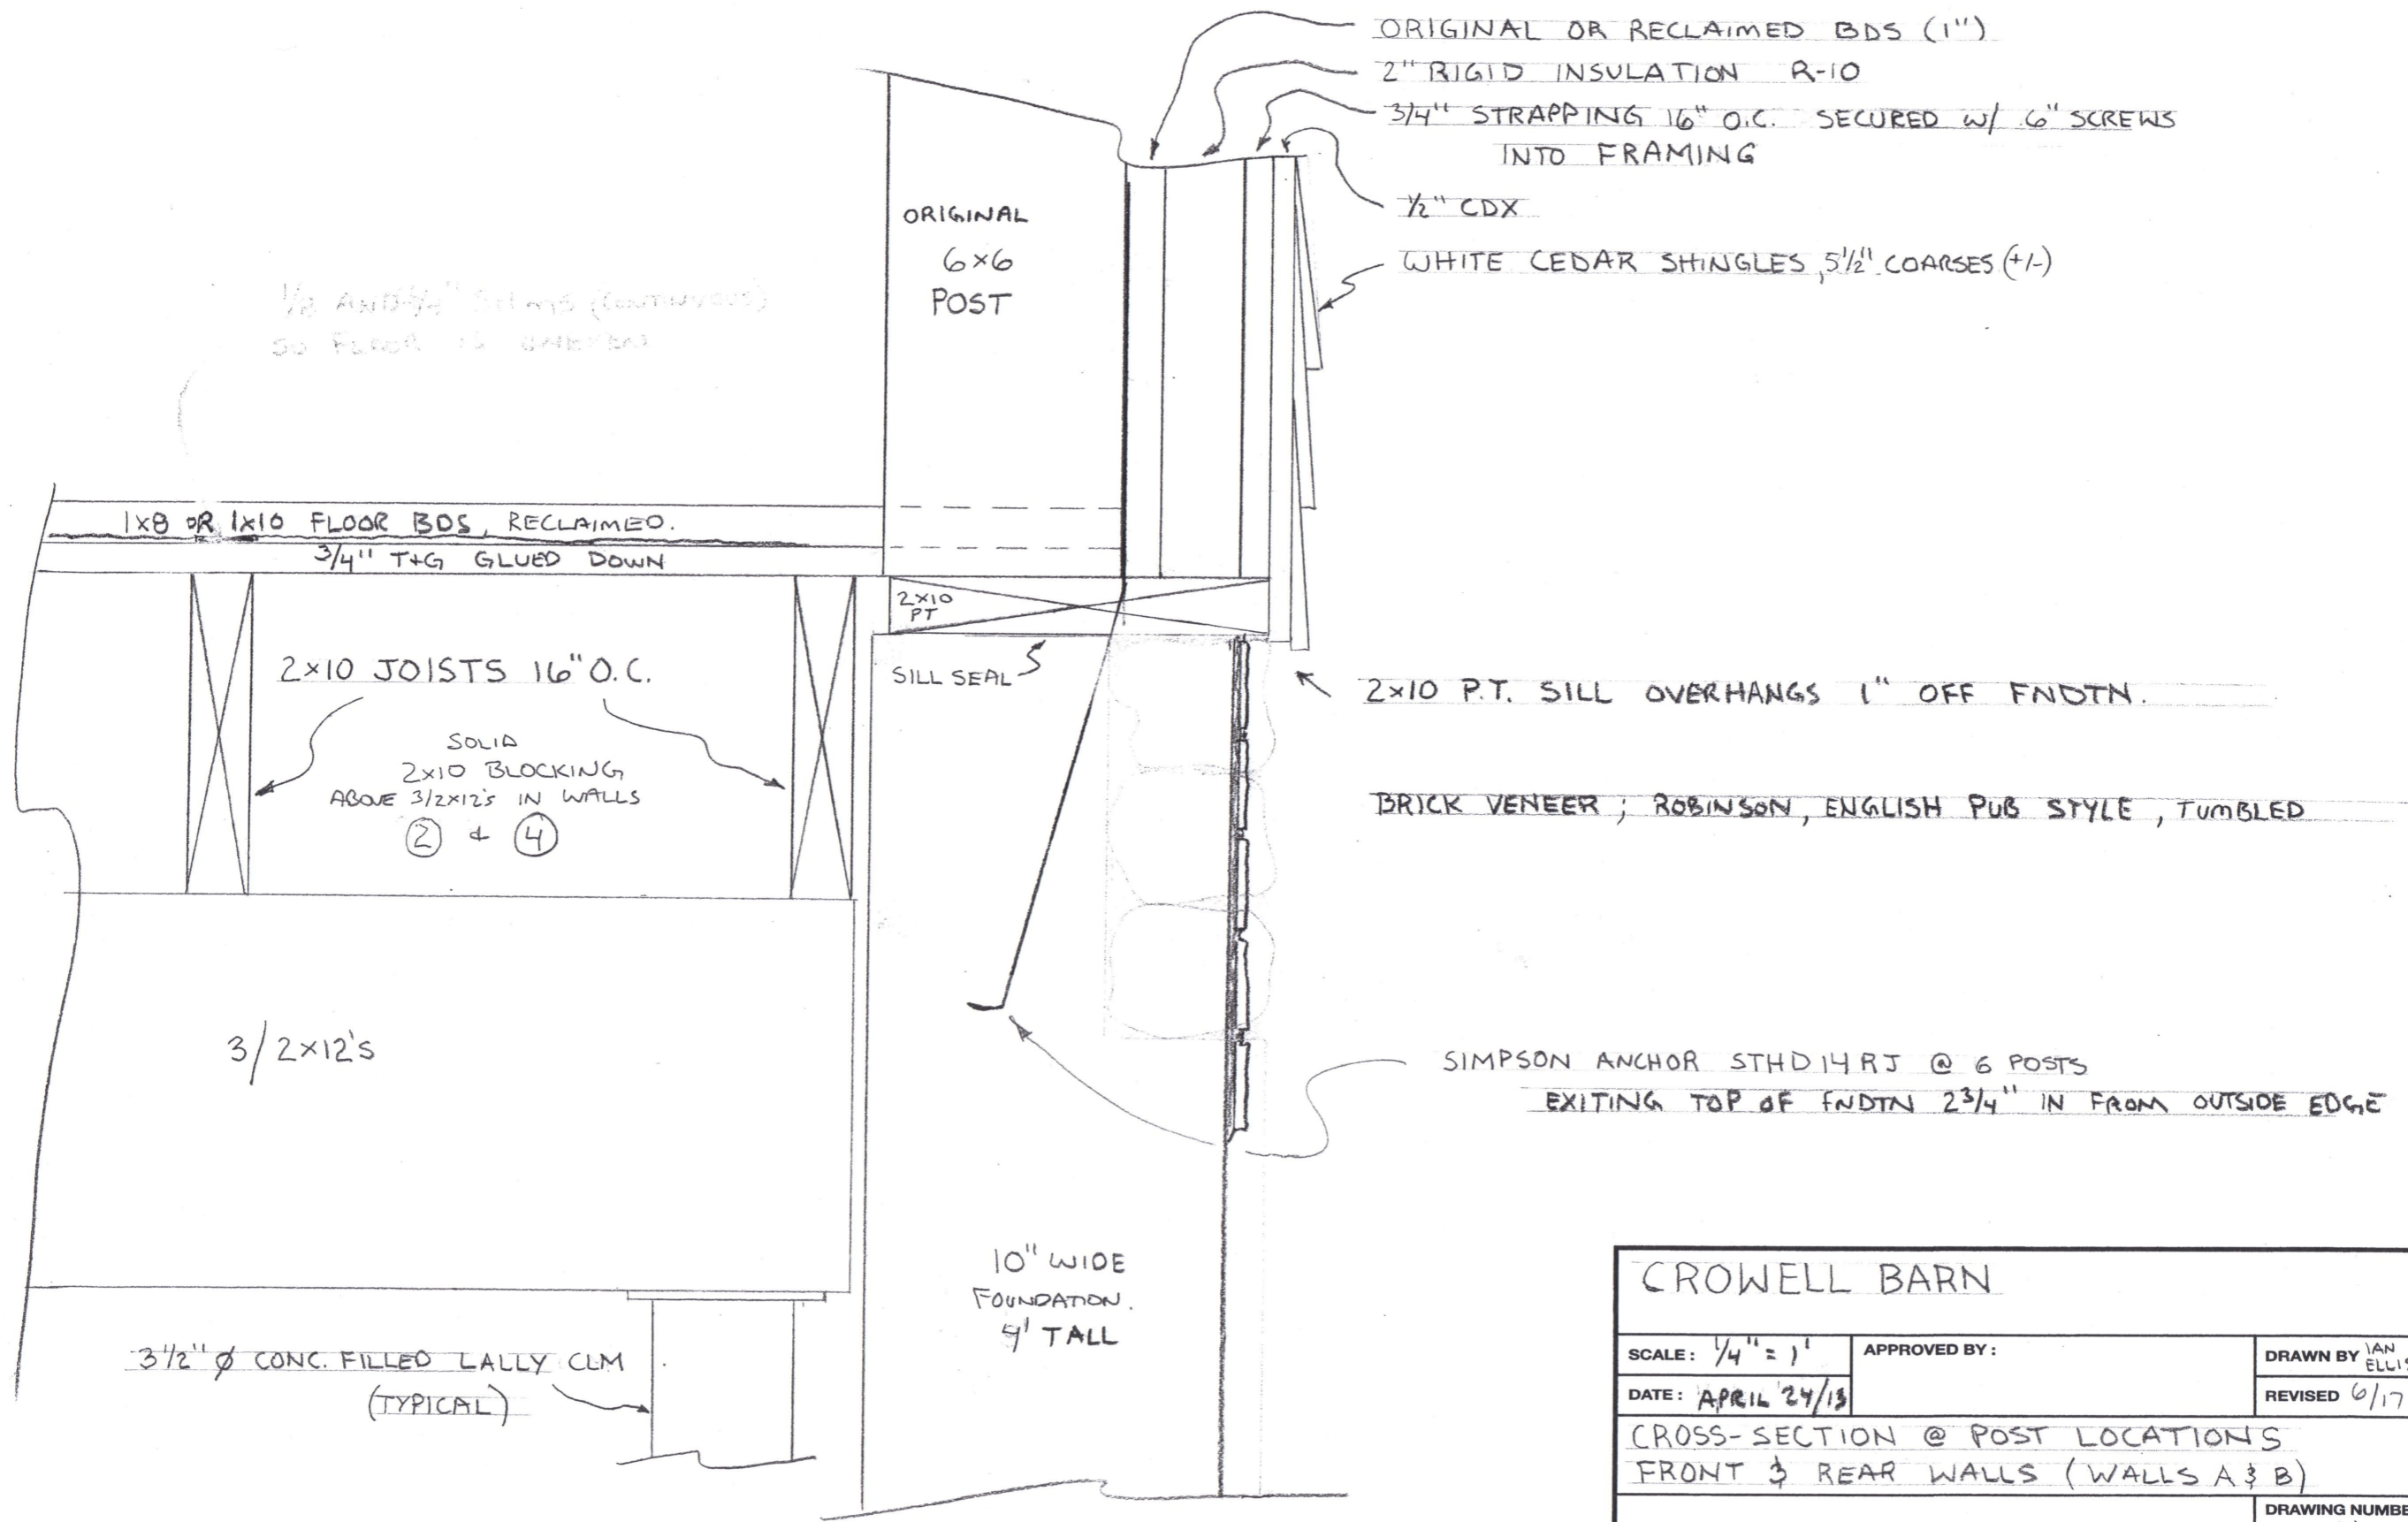 ORIGINAL OR RECLAIMED BDS (1")
2" RIGID INSULATION R-10
3/4" STRAPPING 16" O.C. SECURED W/ 6" SCREWS
INTO FRAMING
1/2" CDX
WHITE CEDAR SHINGLES, 5 1/2" COARSES (+/-)
ORIGINAL
6×6
POST
(CONTINUOUS)
SO FLOOR IS
1×8 OR 1×10 FLOOR BDS, RECLAIMED.
3/4" T+G GLUED DOWN
2×10
PT
SILL SEAL
2×10 JOISTS 16" O.C.
SOLID
2×10 BLOCKING
ABOVE 3/2×12's IN WALLS
2 & 4
2×10 P.T. SILL OVERHANGS 1" OFF FNDTN.
BRICK VENEER; ROBINSON, ENGLISH PUB STYLE, TUMBLED
3/2×12's
SIMPSON ANCHOR STHD14RJ @ 6 POSTS
EXITING TOP OF FNDTN 2 3/4" IN FROM OUTSIDE EDGE
10" WIDE
FOUNDATION.
TALL
3 1/2" Ø CONC. FILLED LALLY CLM
(TYPICAL)
CROWELL BARN
SCALE: 1/4" = 1'
APPROVED BY:
DRAWN BY IAN
ELLIS
DATE: APRIL 24/13
REVISED 6/17
CROSS-SECTION @ POST LOCATIONS
FRONT & REAR WALLS (WALLS A & B)
DRAWING NUMBE